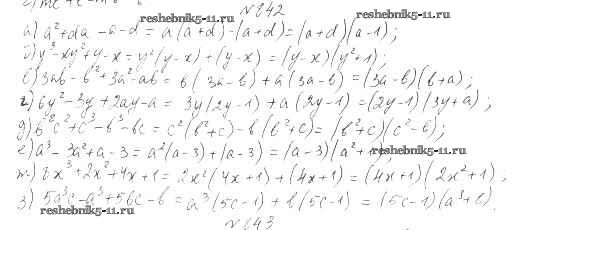 №842
reshebnik5-11.ru
reshebnik5-11.ru
а) a²+da-a-d = a(a+d)-(a+d)=(a+d)(a-1);
б) y³-xy²+y-x = y²(y-x)+(y-x) = (y-x)(y²+1);
в) 3ab-b²+3a²-ab = b(3a-b)+a(3a-b) = (3a-b)(b+a);
г) 6y²-3y+2ay-a = 3y(2y-1)+a(2y-1)=(2y-1)(3y+a);
д) b²c²+c³-b³-bc = c²(b²+c)-b(b²+c)=(b²+c)(c²-b);
е) a³-3a²+a-3 = a²(a-3)+(a-3) = (a-3)(a²+1);
reshebnik5-11.ru
ж) 8x³+2x²+4x+1 = 2x²(4x+1)+(4x+1) = (4x+1)(2x²+1);
з) 5a³c-a³+5bc-b = a³(5c-1)+b(5c-1) = (5c-1)(a³+b).
reshebnik5-11.ru
№843